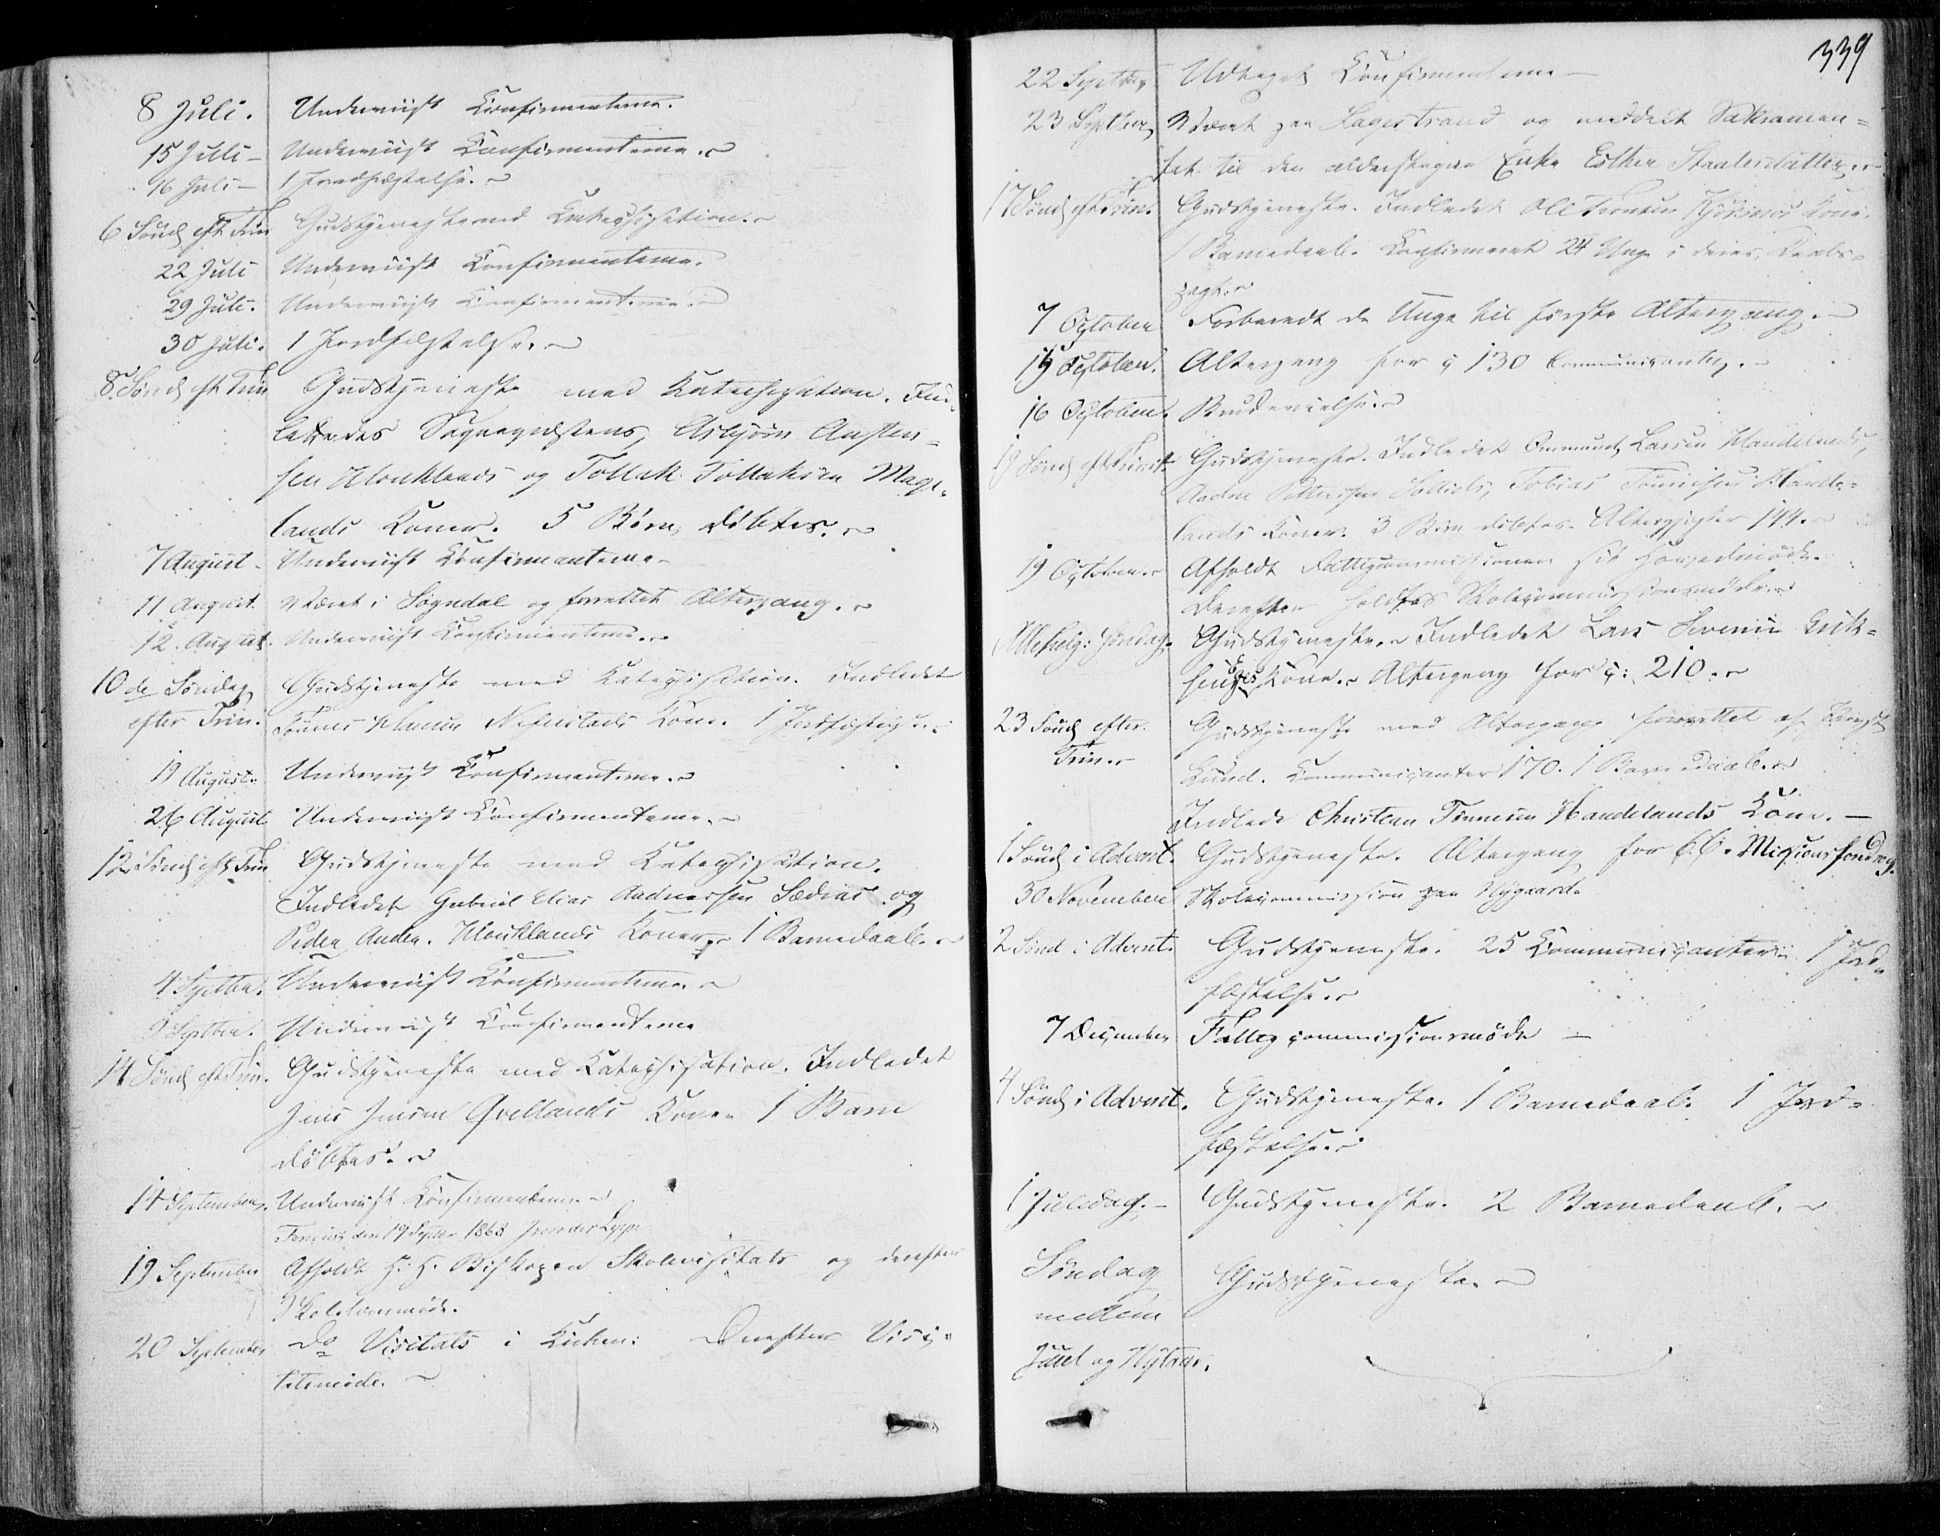 8 Juli. Underviist Konfirmanterne.
15 Juli – Underviist Konfirmanterne.
16 Juli – 1 Jordfæstelse.
6 Sönd eft Trin Gudstjeneste med Katechisation.
22 Juli Underviist Konfirmanterne.
29 Juli. Underviist Konfirmanterne.
30 Juli. 1 Jordfæstelse.
8. Sönd eft Trin Gudstjeneste med Katechisation. Ind-
lededes Asbjörn
og Tollak Tollaksen
lands Koner. 5 Børn döbtes.
7 August – Underviist Konfirmanterne –
11 August. Været i Sogndal og forrettet Altergang.
12. August. Underviist Konfirmanterne.
10 de Söndag Gudstjeneste med Katechisation. Indledet
efter Trin. Kone. 1
19 August Underviist Konfirmanterne.
26 August Underviist Konfirmanterne.
12 Sönd eft Trin Gudstjeneste med Katechisation.
Indledet Gabriel Elias Aadnesen og
Peder Koner. 1 Barnedaab.
4 Septbr. Underviist Konfirmanterne.
9 Septbr. Underviist Konfirmanterne
14 Sönd eft Trin. Gudstjeneste med Katechisation. Indledet
Jens Jensen Qvellands Kone. 1 Barn
döbtes.
14 September. Underviist Konfirmanterne
den 19 Septbr 1868
19 September Afholdt Hr. H. Biskopen Skolevisitats og derefter
20 September Do Visitats i Kirken. Derefter Visi-
tatsmöde.
339
22 Septbr Udtaget Konfirmanterne –
23 Septbr Været paa Lagestrand og meddelt Sakramen-
tet til den alderstegne Enke Esther
17 Sönd eft Trin. Gudstjeneste. Indledet Kone.
1 Barnedaab. Konfirmeret 24 Unge i deres Daabs-
pagt.
7 October Forberedt de Unge til förste Altergang. –
October. Altergang for 130 Communicanter. –
16 October. Brudevielse.
19 Sönd eft Trinit. Gudstjeneste. Indledet Ommund Larsen Handelands,
Tobias Tönnesen Hande-
lands Koner. 3 Börn döbtes. Altergjester 144.
19 October. Afholdt Fattigcommissionen sit Hovedmöde.
Derefter holdtes Skolecommissionsmöde.
Allehelg: Söndag. Gudstjeneste. Indledet Lars Severin Erik-
sens Kone. Altergang for 210.
23 Sönd efter Gudstjeneste med Altergang forrettet af
Trin. Lund. Kommunicanter 170. 1 Barnedaab.
Indledt Christian Tönnesen Handelands Kone. –
1 Sönd i Advent. Gudstjeneste. Altergang for 66. Misionsforedrag.
30 November Skolecommission paa Nygaard
2 Sönd i Advent. Gudstjeneste. 25 Kommunicanter. 1 Jord-
fæstelse.
7 December Fattigcommissionsmöde –
4 Sönd i Advent. Gudstjeneste. 1 Barnedaab. 1 Jord-
fæstelse.
1 Juledag. – Gudstjeneste. 2 Barnedaab.
Söndag Gudstjeneste.
mellem
Juul og Nytaar.